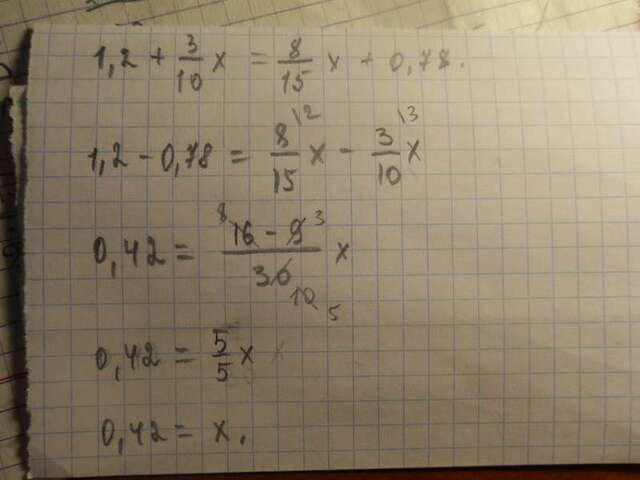 1,2 + 3/10 x = 8/15 x + 0,78.
1,2 - 0,78 = 8/15 \2 x - 3/10 \3 x
0,42 = 8 16 - 9 3 / 30 10 5 x
0,42 = 5/5 x x
0,42 = x.